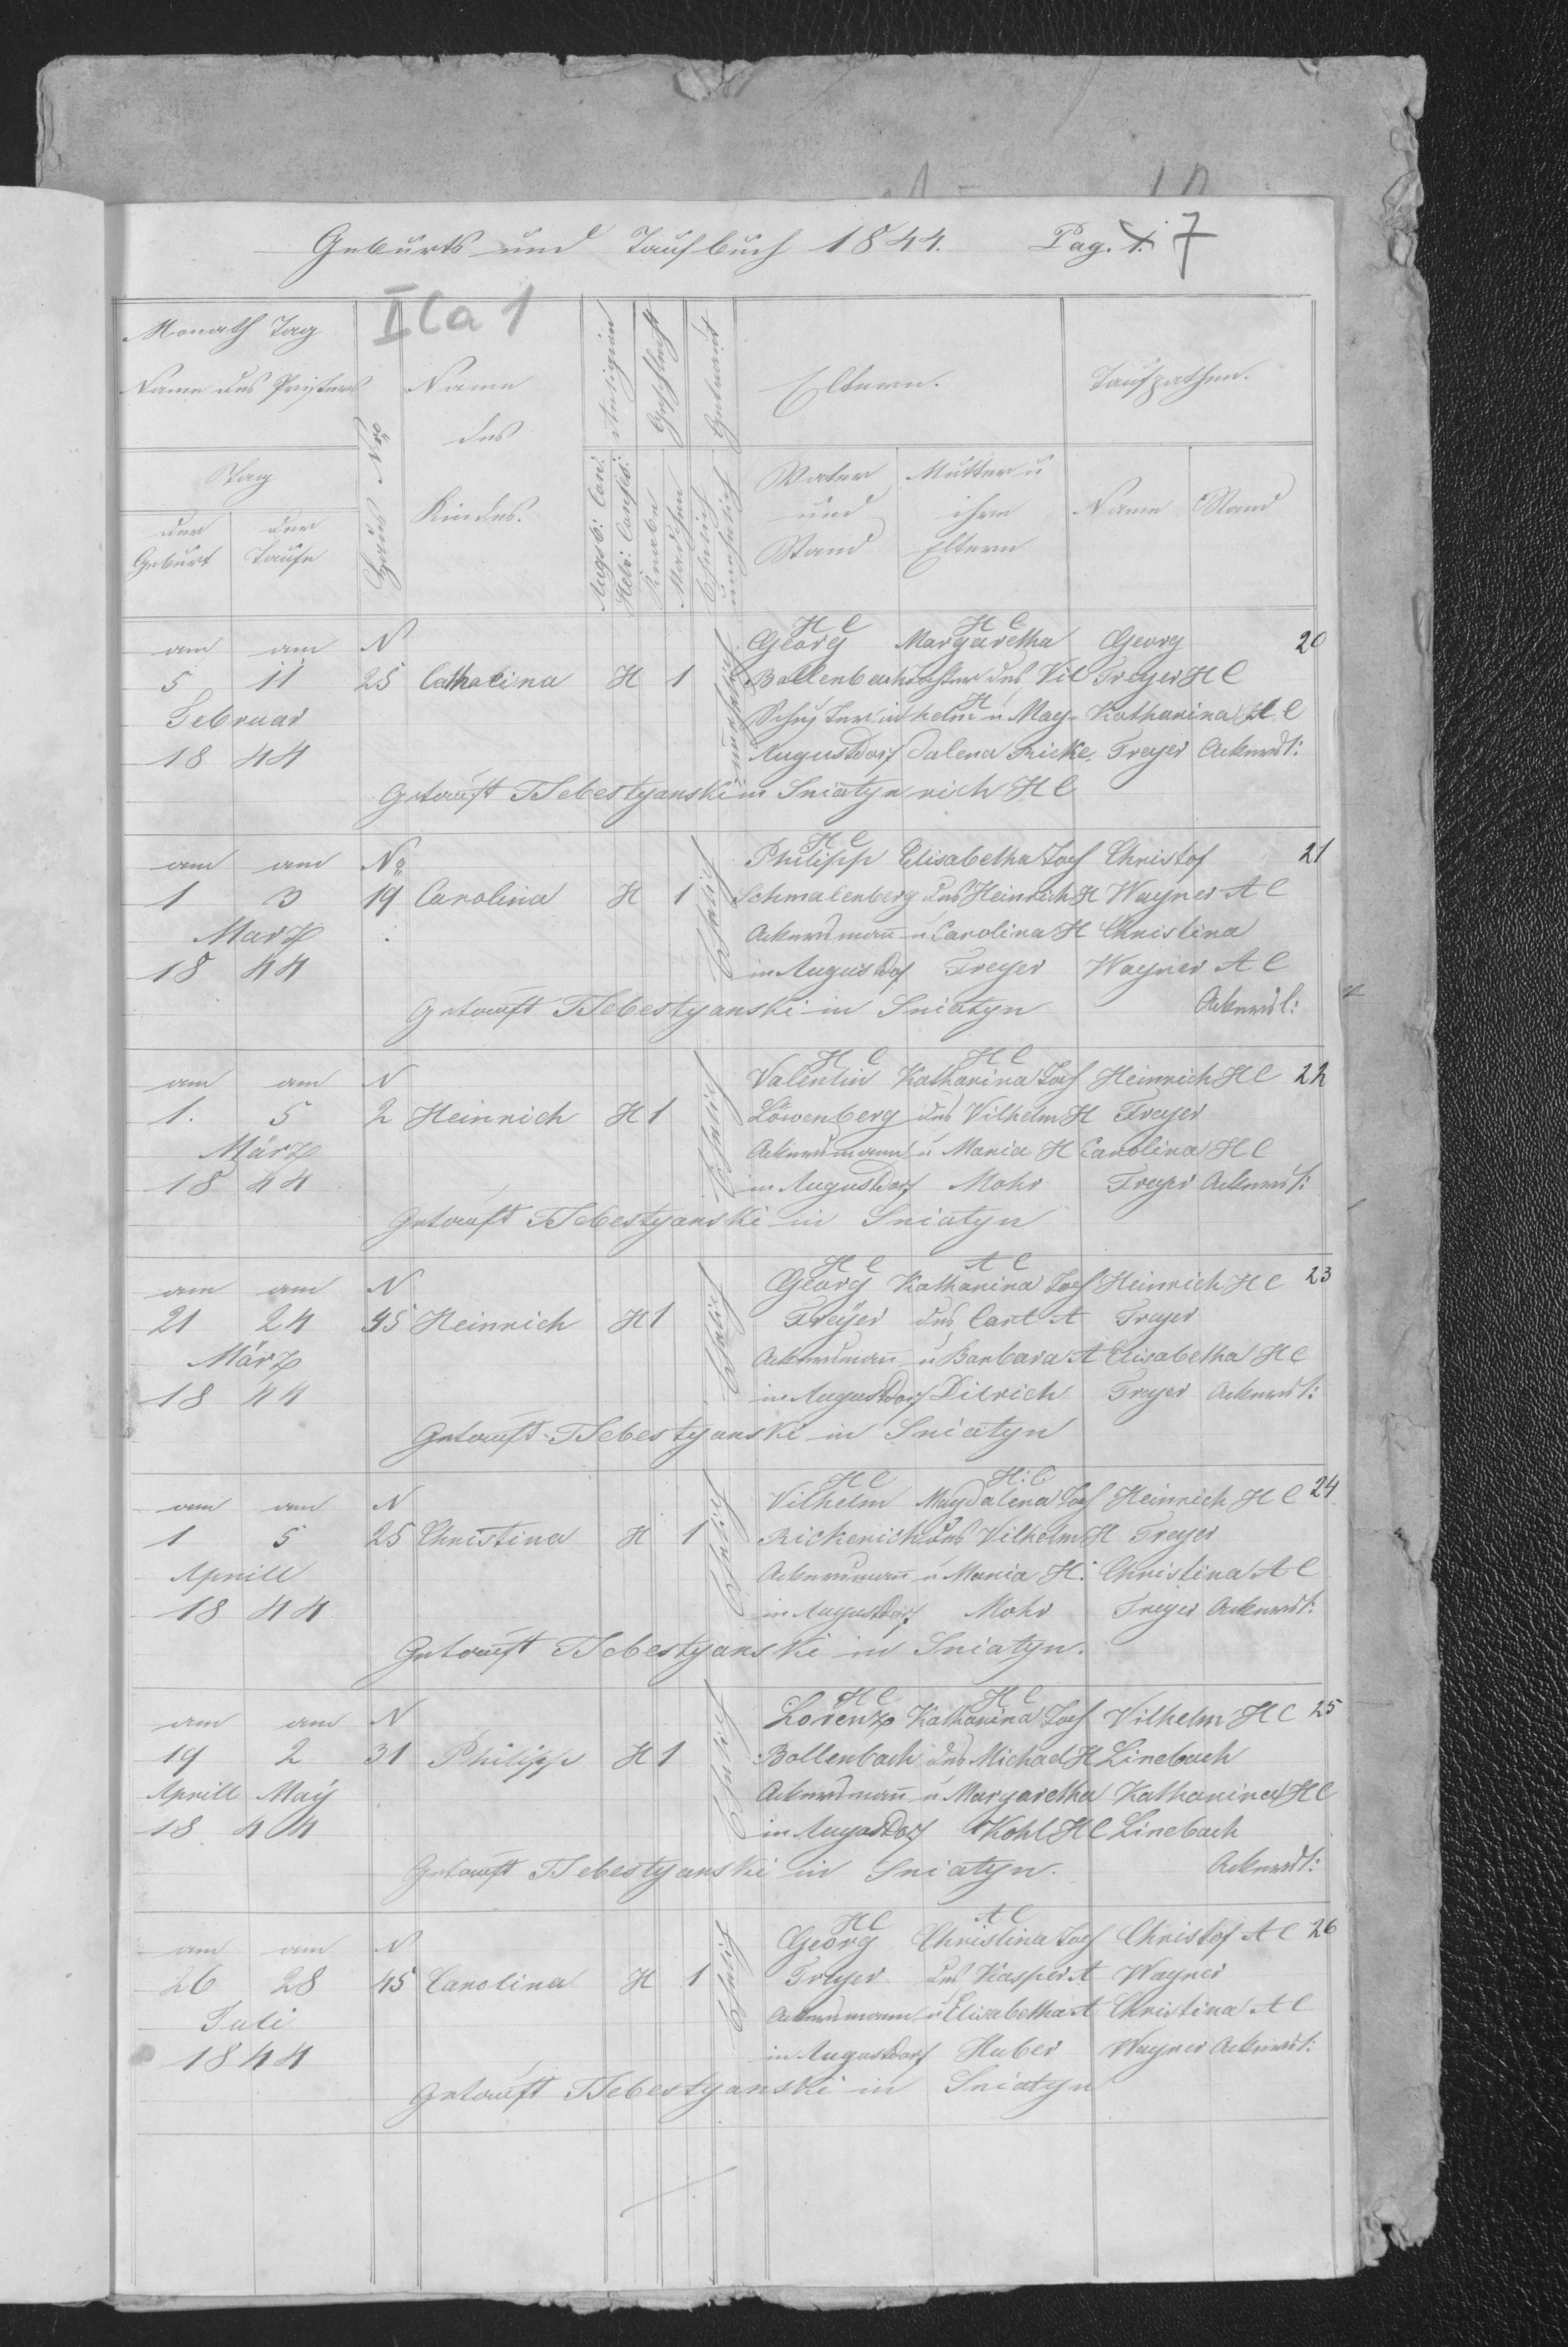 Geburts und Taufbuch 1844. Pag. 7
I C a 1
Monath Tag
Name des Pristers
Tag
der Geburt
der Taufe
Haus Nro
Name
des
Kindes.
Religion
Augsb: Con:
Helv: Confes:
Geschlecht
Knabe
Madchen
Getraut
Ehelich
unehelich
Eltern.
Vater
und
Stand
Mutter u
ihre
Eltern
Taufpathen.
Name
Stand
H C H C
am am N Georg Margaretha Georg 20
5 11 25 Catharina H 1 unehelich Bollenbach Tochter des Vil Freyer H C
Februar Schuster in helm H u Mag- Katharina H C
18 44 Augustdorf dalena Ricke- Freyer Ackersl:
Getauft TSebestyanski in Sniatyn rich H C
H C
am am No Philipp Elisabetha Toch Christof 21
1 3 19 Carolina H 1 Ehelich Schmalenberg des Heinrich H Wagner A C
Marz Ackersmann u Carolina H Christina
18 44 in Augusdof Freyer Wagner A C
Getauft TSebestyanski in Sniatyn Ackersl:
H C H C
am am N Valentin Katharina Toch Heinrich H C 22
1. 5 2 Heinrich H 1 Ehelich Löwenberg des Vilhelm H Freyer
März Ackersmann u Maria H Carolina H C
18 44 in Augustdorf Mohr Freyer Ackersl:
Getauft TSebestyanski in Sniatyn
H C A C
am am N Georg Katharina Toch Heinrich H C 23
21 24 45 Heinrich H 1 Ehelich Freÿer des Carl A Freyer
März Ackersmann u Barbara A Elisabetha H C
18 44 in Augustdorf Ditrich Freyer Ackersl:
Getauft TSebestyanski in Sniatyn
H C H: C
am am N Vilhelm Magdalena Toch Heinrich H C 24
1 5 25 Christina H 1 Ehelich Rickerich des Vilhelm H Freyer
Aprill Ackersmann u Maria H: Christina A C
18 44 in Augustdorf Mohr Freyer Ackersl:
Getauft TSebestyanski in Sniatyn.
H C H C
am am N Lorenz Katharina Toch Vilhelm H C 25
19 2 31 Philipp H 1 Ehelich Bollenbach des Michael H Linebach
Aprill May Ackersmann u Margaretha Katharina H C
18 44 in Augusdorf Kohl H C Linebach
Getauft TSebestyanski in Sniatyn. Ackersl:
H C A C
am am N Georg Christina Toch Christof A C 26
26 28 45 Carolina H 1 Ehelich Freyer des Kasper A Wagner
Juli Ackersmann u Elisabetha A Christina A C
1844 in Augustdorf Huber Wagner Ackersl:
Getauft TSebestyanski in Sniatyn